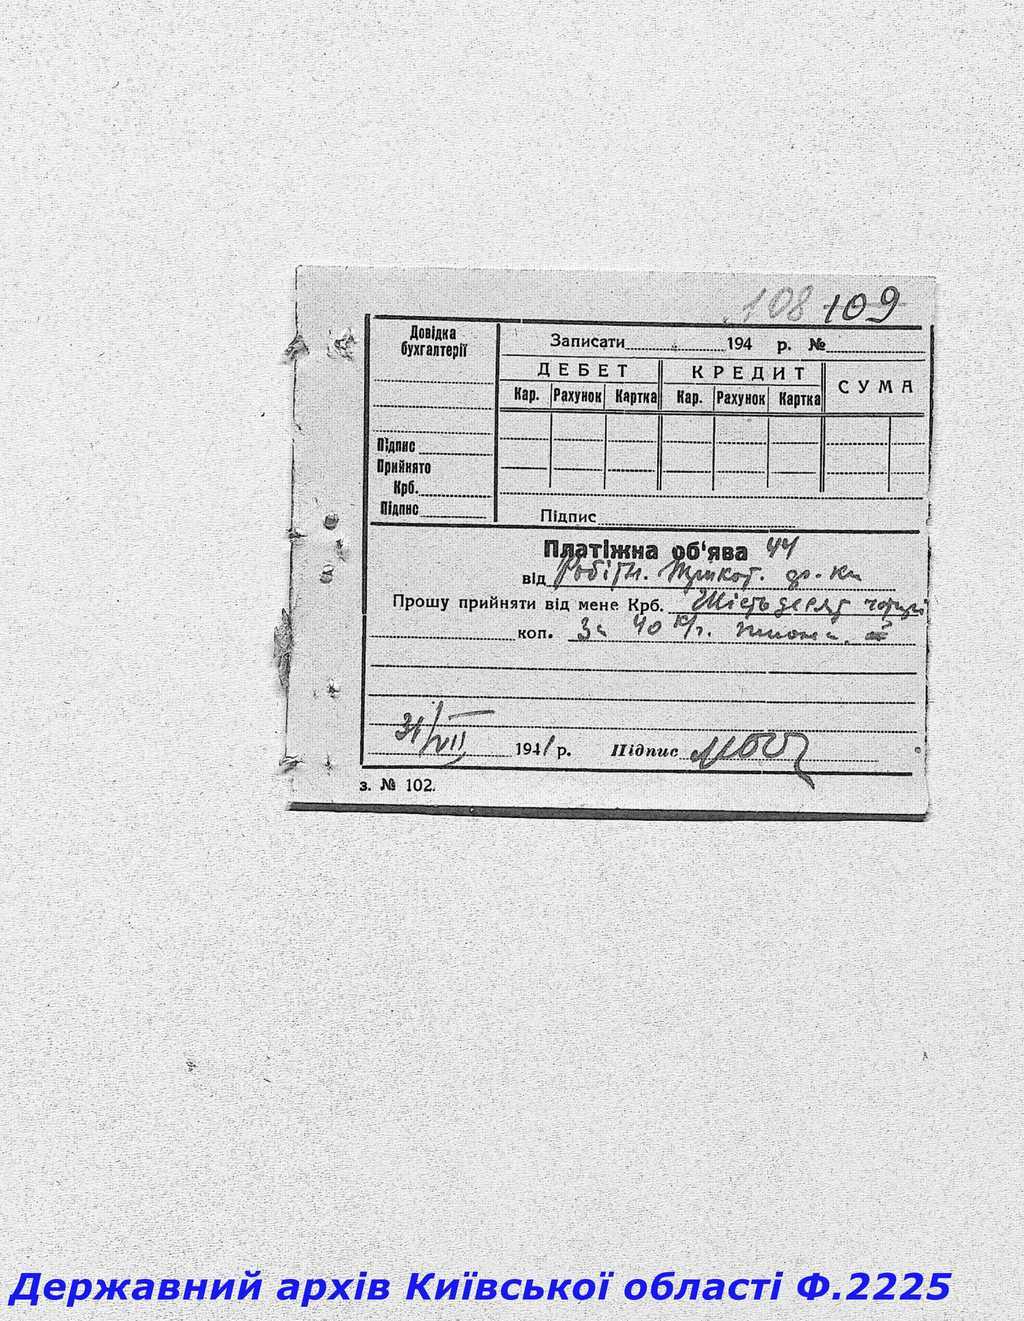 108 109
Довідка
бухгалтерії
Підпис
Прийнято
Крб.
Підпис
Записати 194 р. №
ДЕБЕТ КРЕДИТ СУМА
Кар. Рахунок Картка Кар. Рахунок Картка
Підпис
Платіжна об'ява 44
від Робітн. Трикот.
Прошу прийняти від мене Крб. Шістьдесят чотири
коп. За 40
31/VII 1941 р. Підпис
з. № 102.
Державний архів Київської області Ф.2225